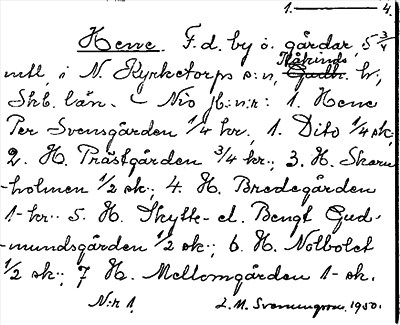 1. ——— 4.
Hene. F.d. by o. gårdar, 5 3/4
mtl, i N. Kyrketorps s:n, Kåkinds hd,
Skb. län. – Nio jb:n:r: 1. Hene
Per Svensgården 1/4 kr., 1. Dito 1/4 sk.;
2. H. Prästgården 3/4 kr.; 3. H. Skarn-
-holmen 1/2 sk.; 4. H. Bredegården
1- kr.. 5. H. Skytte- el. Bengt Gud-
-mundsgården 1/2 sk.; 6. H. Nolbolet
1/2 sk.; 7 H. Mellomgården 1- sk.
N:r 1. L. M. Svenungsson. 1950.